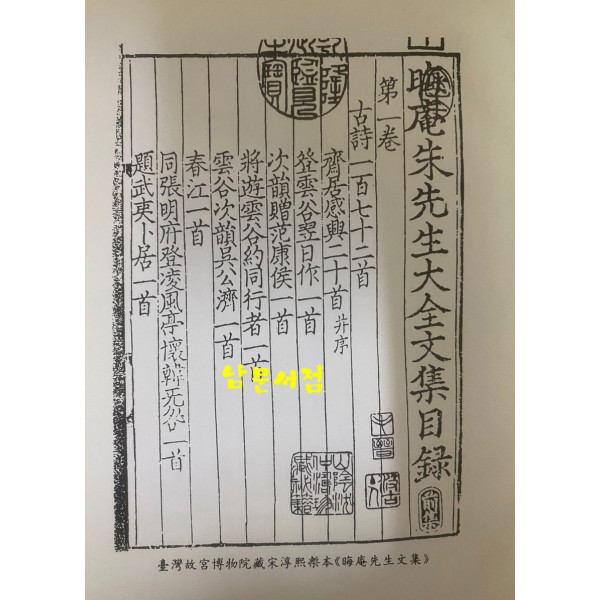 晦庵朱先生大全文集目録
前集
第一卷
古詩一百七十二首
齋居感興二十首 并序
登雲谷翌日作一首
次韻贈范康侯一首
將遊雲谷約同行者一首
雲谷次韻吳公濟一首
春江一首
同張明府登凌風亭懷韓无咎一首
題武夷卜居一首
남문서점
臺灣故宮博物院藏宋淳熙槧本《晦庵先生文集》